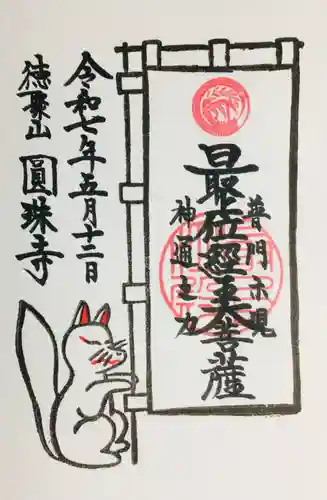 普門示現
最位經王大菩薩
神通之力
令和七年五月十二日
徳聚山 圓珠寺